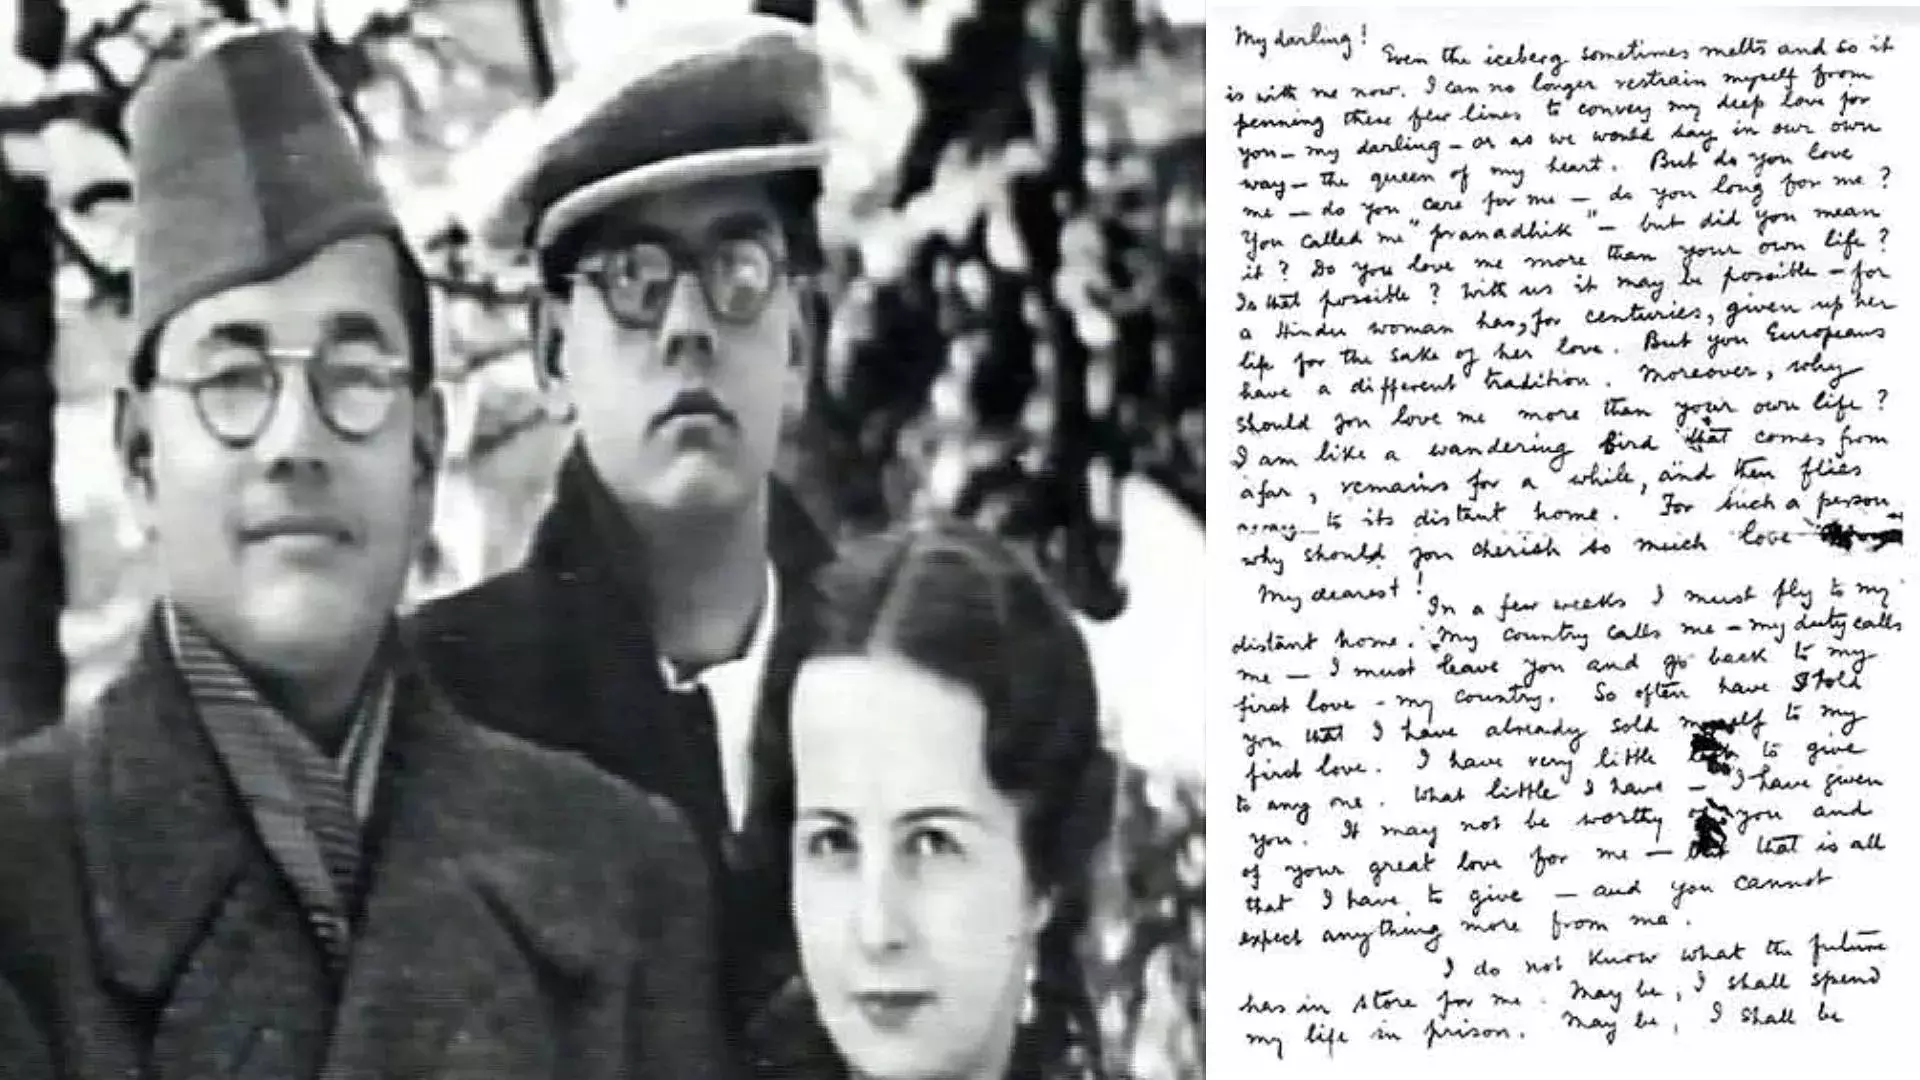 My darling!
Even the iceberg sometimes melts and so it
is with me now. I can no longer restrain myself from
penning these few lines to convey my deep love for
you – my darling – or as we would say in our own
way – the queen of my heart. But do you love
me – do you care for me – do you long for me?
You called me "pranadhik" – but did you mean
it? Do you love me more than your own life?
Is that possible? With us it may be possible – for
a Hindu woman has, for centuries, given up her
life for the sake of her love. But you Europeans
have a different tradition. Moreover, why
should you love me more than your own life?
I am like a wandering bird that comes from
afar, remains for a while, and then flies
away to its distant home. For such a person
why should you cherish so much love
My dearest!
In a few weeks I must fly to my
distant home. My country calls me – my duty calls
me – I must leave you and go back to my
first love – my country. So often have I told
you that I have already sold myself to my
first love. I have very little to give
to any one. What little I have – I have given
you. It may not be worthy of you and
of your great love for me – but that is all
that I have to give – and you cannot
expect anything more from me.
I do not know what the future
has in store for me. May be, I shall spend
my life in prison. May be, I shall be